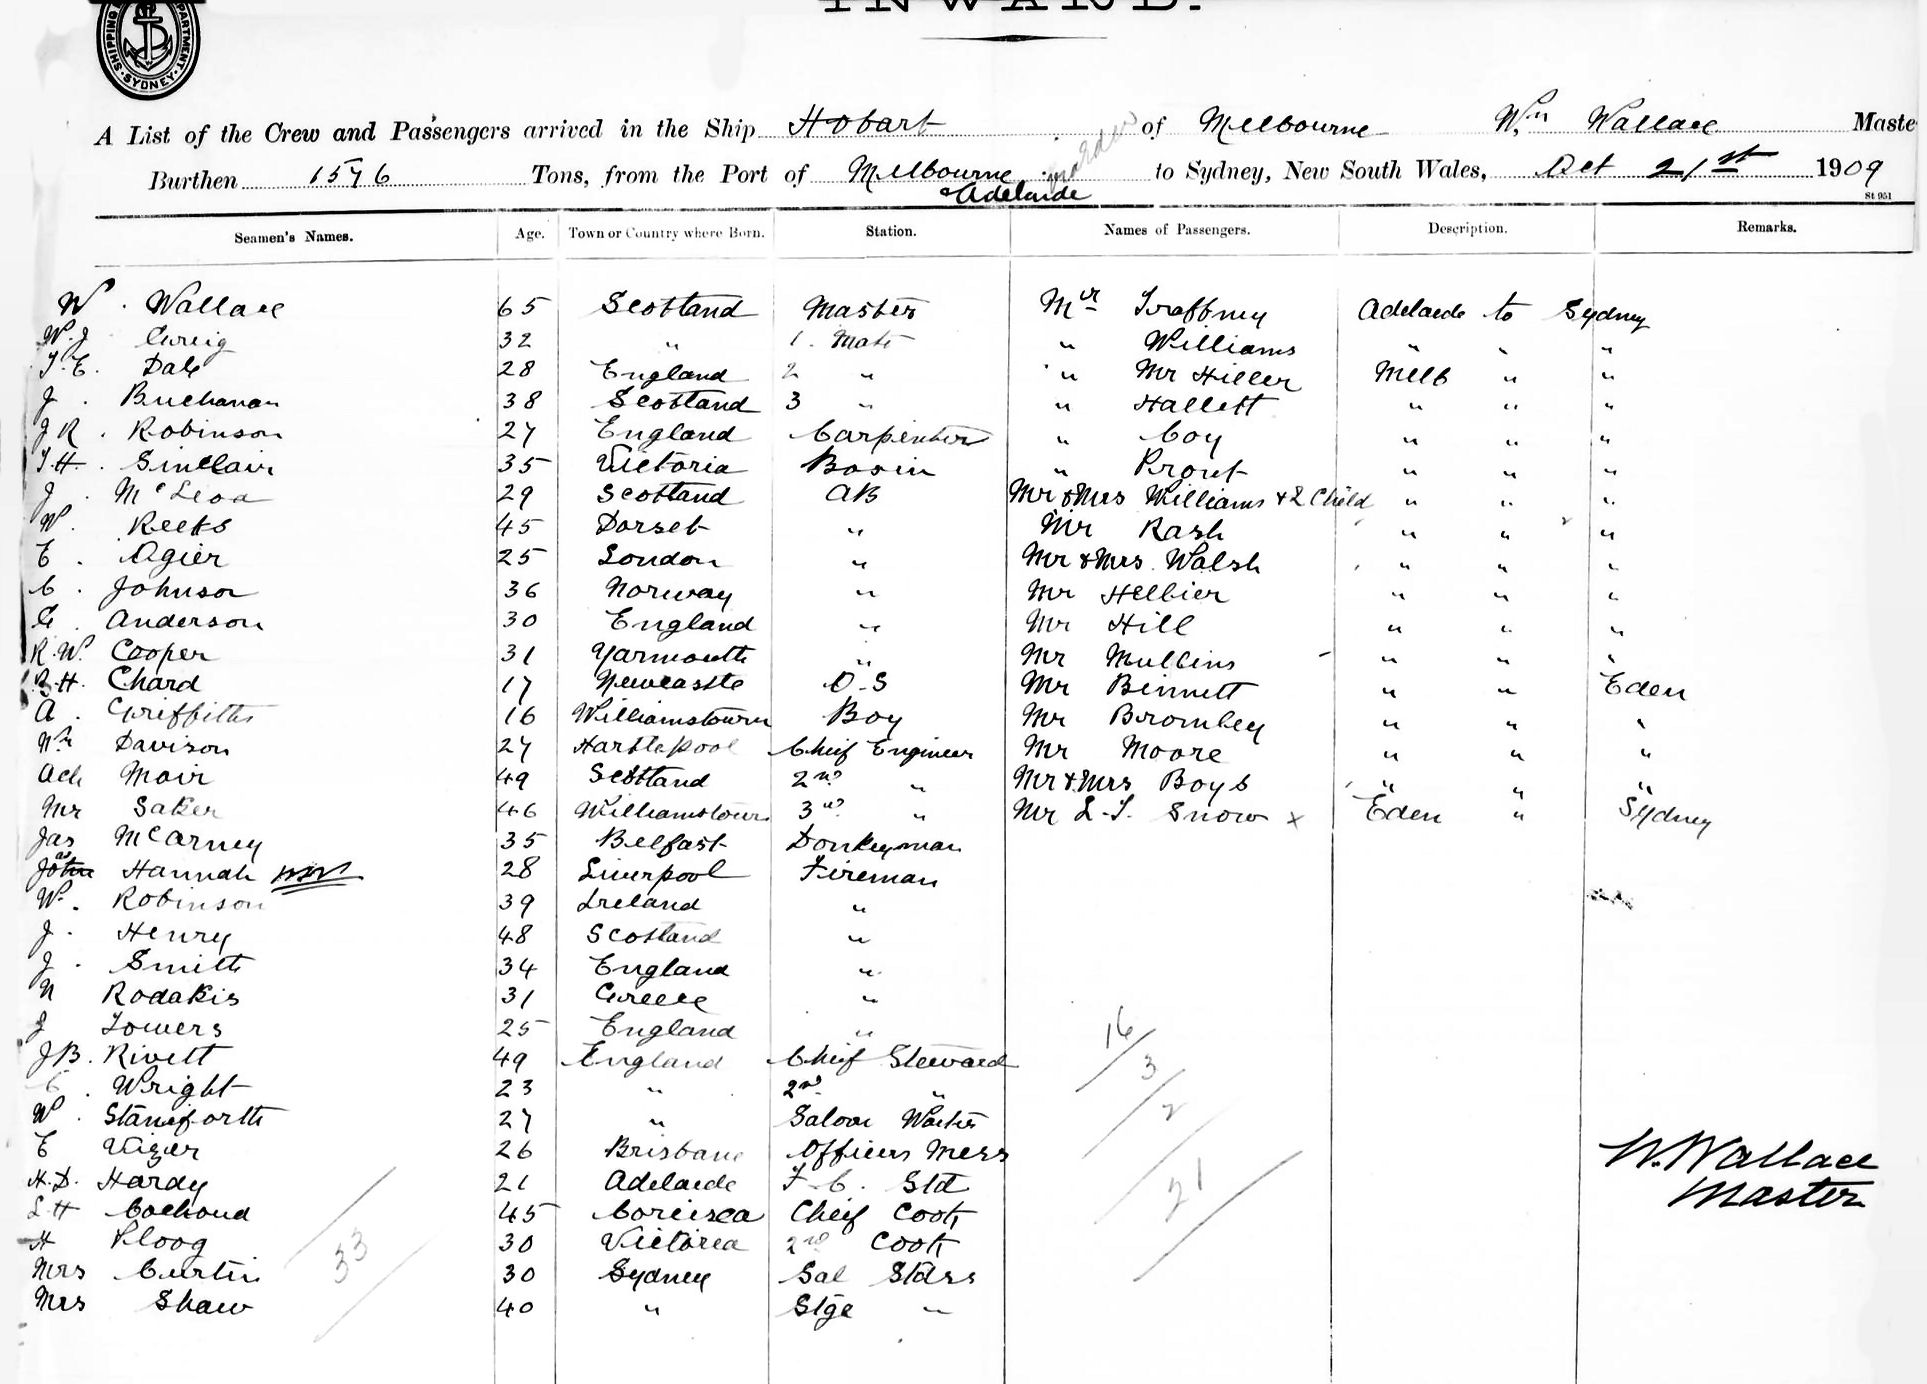 INWARD.
SHIPPING DEPARTMENT SYDNEY
A List of the Crew and Passengers arrived in the Ship Hobart of Melbourne Wm Wallace Maste
Burthen 1576 Tons, from the Port of Melbourne & Adelaide to Sydney, New South Wales, Oct 21st 1909
St 951
Seamen's Names. Age. Town or Country where Born. Station. Names of Passengers. Description. Remarks.
W. Wallace 65 Scotland Master Mr Traffney Adelaide to Sydney
W.J. Greig 32 " 1. Mate " Williams " " "
T.E. Dale 28 England 2 " " Mr Hiller Melb " "
J. Buchanan 38 Scotland 3 " " Hallett " " "
J R. Robinson 27 England Carpenter " Coy " " "
T.H. Sinclair 35 Victoria Bosin " Prout " " "
J. McLeod 29 Scotland AB Mr & Mrs Williams & 2 Child " " "
W. Reeks 45 Dorset " Mr Rash " " "
E. Agier 25 London " Mr & Mrs Walsh " " "
C. Johnson 36 Norway " Mr Hellier " " "
G. Anderson 30 England " Mr Hill " " "
R.W. Cooper 31 Yarmouth " Mr Mullins " " "
H. Chard 17 Newcastle O.S Mr Binnett " " Eden
A. Griffiths 16 Williamstown Boy Mr Bromley " " "
Wm Davison 27 Hartlepool Chief Engineer Mr Moore " " "
Ach Moir 49 Scotland 2nd " Mr & Mrs Boys " " "
Mr Saker 46 Williamstown 3rd " Mr L.T. Snow x Eden " Sydney
Jas McArney 35 Belfast Donkeyman
John Hannah 28 Liverpool Fireman
W. Robinson 39 Ireland "
J. Henry 48 Scotland "
J. Smith 34 England "
N Rodakis 31 Greece "
J Towers 25 England "
J B. Rivett 49 England Chief Steward
C. Wright 23 " 2nd "
W. Staniforth 27 " Saloon Waiter
E Vizer 26 Brisbane Officers Mess
H.D. Hardy 21 Adelaide F.C. Std
L H Cochoud 45 Corsica Chief Cook
H Ploog 30 Victoria 2nd Cook
Mrs Curtin 30 Sydney Sal Stdss
Mrs Shaw 40 " Stge "
16/
3/
2/
21/
33/
W. Wallace
Master